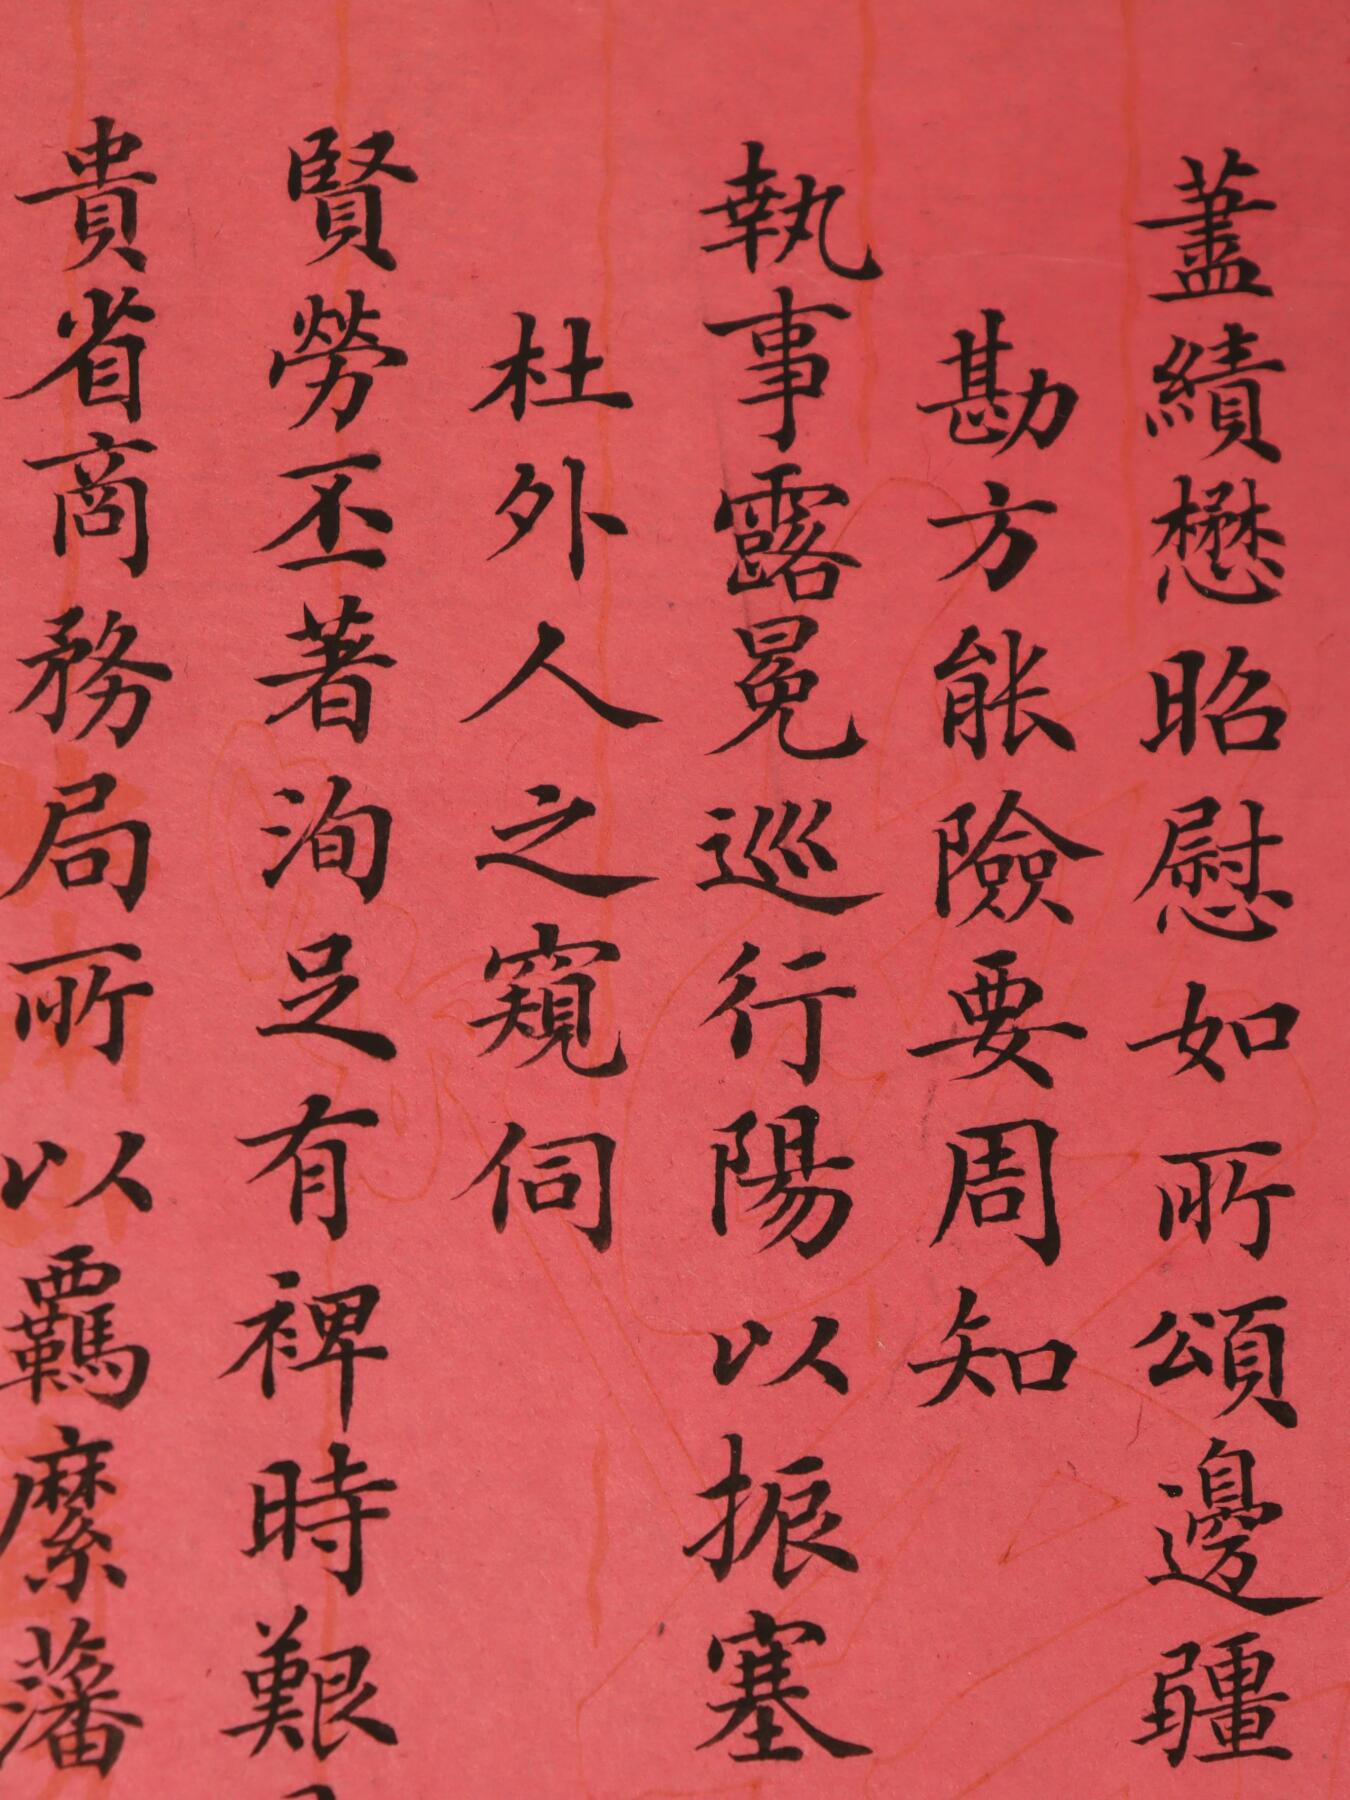 藎績懋昭慰如所頌邊疆
勘方能險要周知
執事露冕巡行陽以振塞
杜外人之窺伺
賢勞丕著洵足有裨時艱
貴省商務局所以羈縻藩